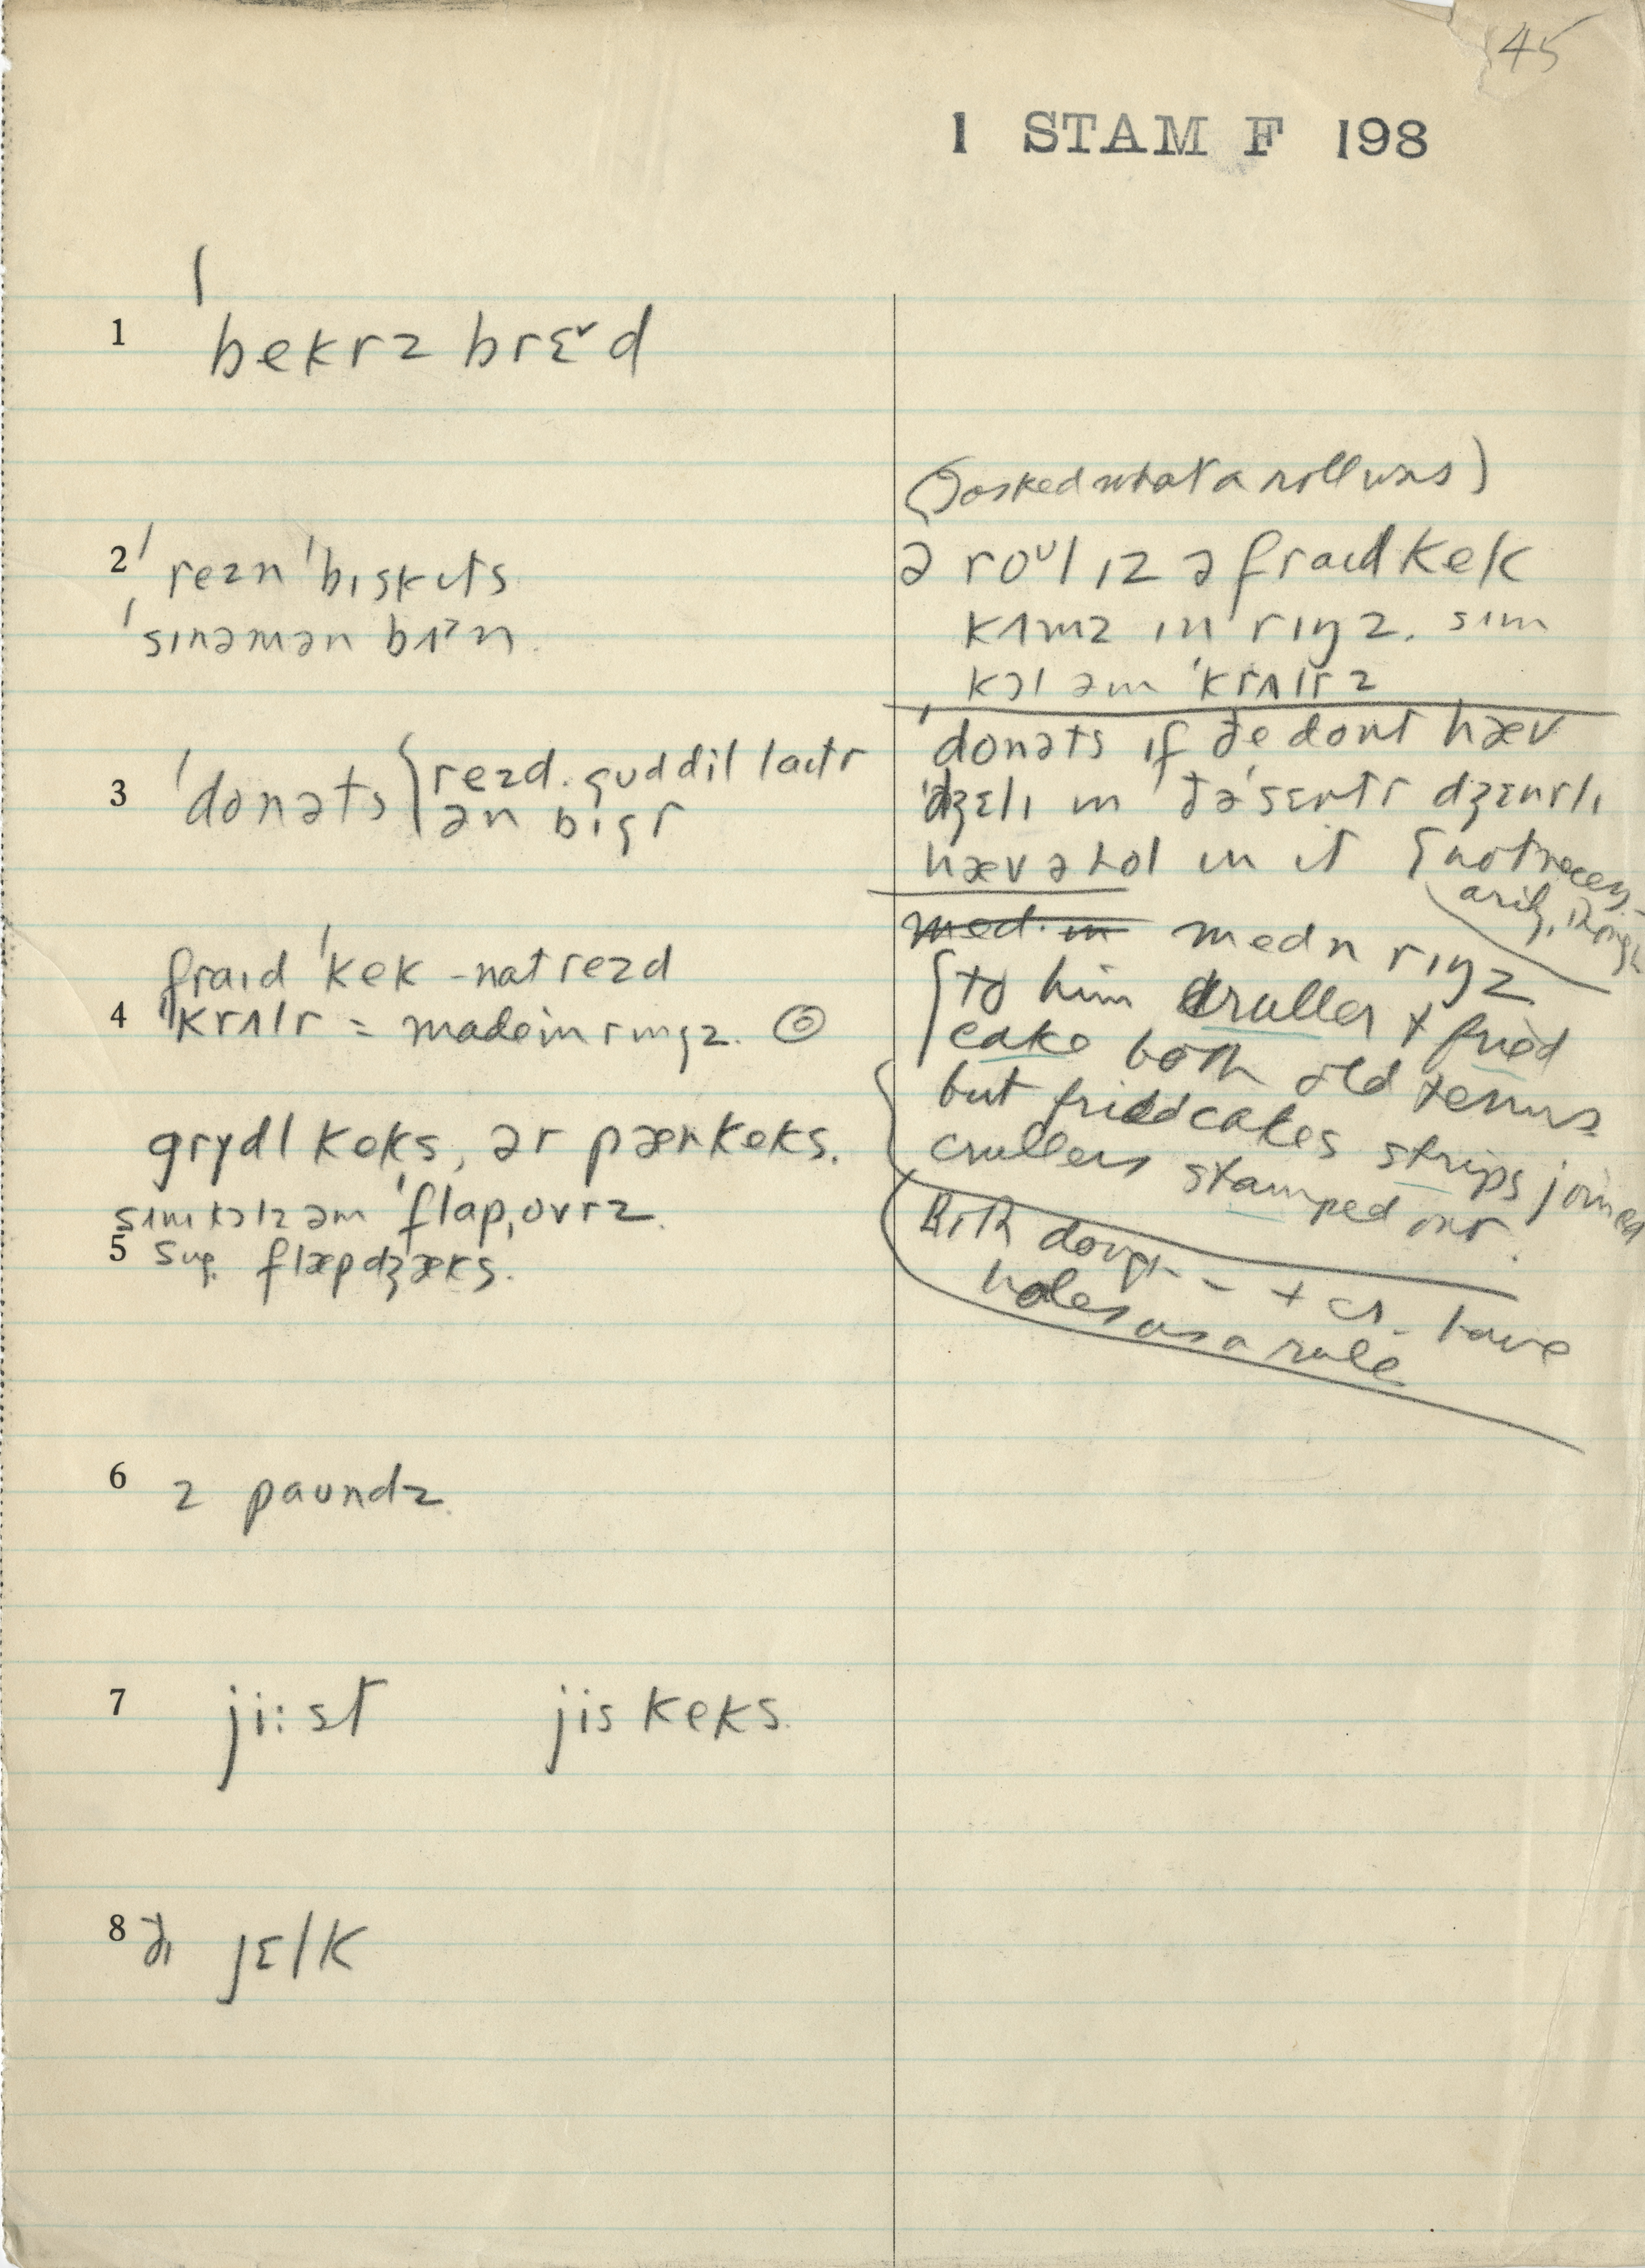 45
1 STAM F 198
1 ˈbekrz brɛ˅d
2 ˈrezn ˈbɪskɪts
ˈsɪnəmən bʌᵊn.
3 ˈdonəts { rezd. gud dil laɪtr
ən bɪgr
fraɪd ˈkek - nat rezd
4 ˈkrʌlr = made in rɪŋgz. ◎
grɪdl keks, ər pænkeks.
5 sʌm kɔlz əm ˈflapˌovrz.
sug. flæpdʒæks.
6 2 paundz.
7 ji:st jis keks.
8 ðɪ jɛlk
(I asked what a roll was)
ə roᵘl ɪz ə fraɪd kek
kʌmz ɪn rɪŋz. sʌm
kɔl əm ˈkrʌlrz
ˈdonəts ɪf ðe dont hæv
ˈdʒɛlɪ ɪn ðə ˈsɛntr dʒɛnrlɪ
hæv ə hol ɪn ɪt { not necess-
arily, though
med. ɪn med n rɪŋz
{ to him cruller + fried
cake both old terms
but fried cakes strips joined
crullers stamped out.
Both dough- - + cr. have
holes as a rule